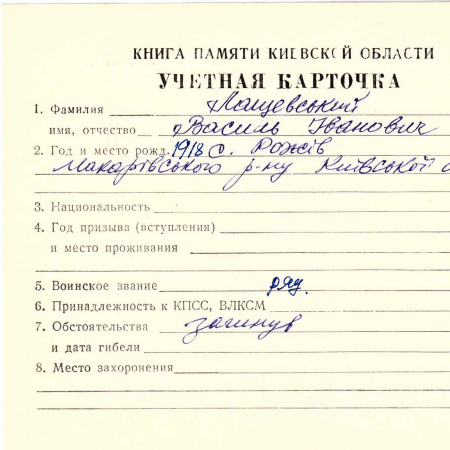 КНИГА ПАМЯТИ КИЕВСКОЙ ОБЛАСТИ
УЧЕТНАЯ КАРТОЧКА
1. Фамилия Лащевський
имя, отчество Василь Іванович
2. Год и место рожд. 1918 с. Рожів
Макарівського р-ну Київської о
3. Национальность
4. Год призыва (вступления)
и место проживания
5. Воинское звание ряд.
6. Принадлежность к КПСС, ВЛКСМ
7. Обстоятельства загинув
и дата гибели
8. Место захоронения